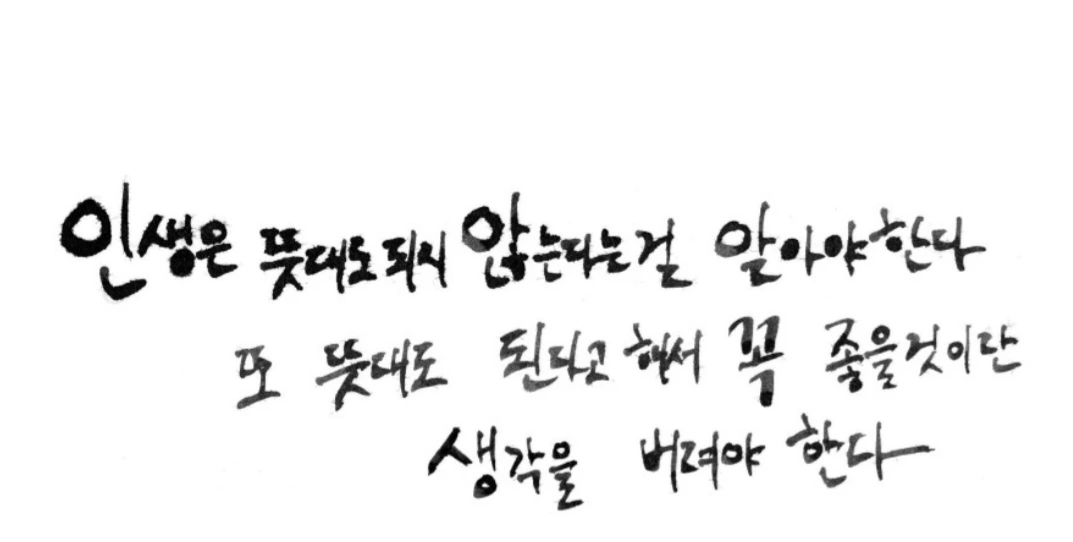 인생은 뜻대로 되지 않는다는 걸 알아야 한다
또 뜻대로 된다고 해서 꼭 좋을것이란
생각을 버려야 한다